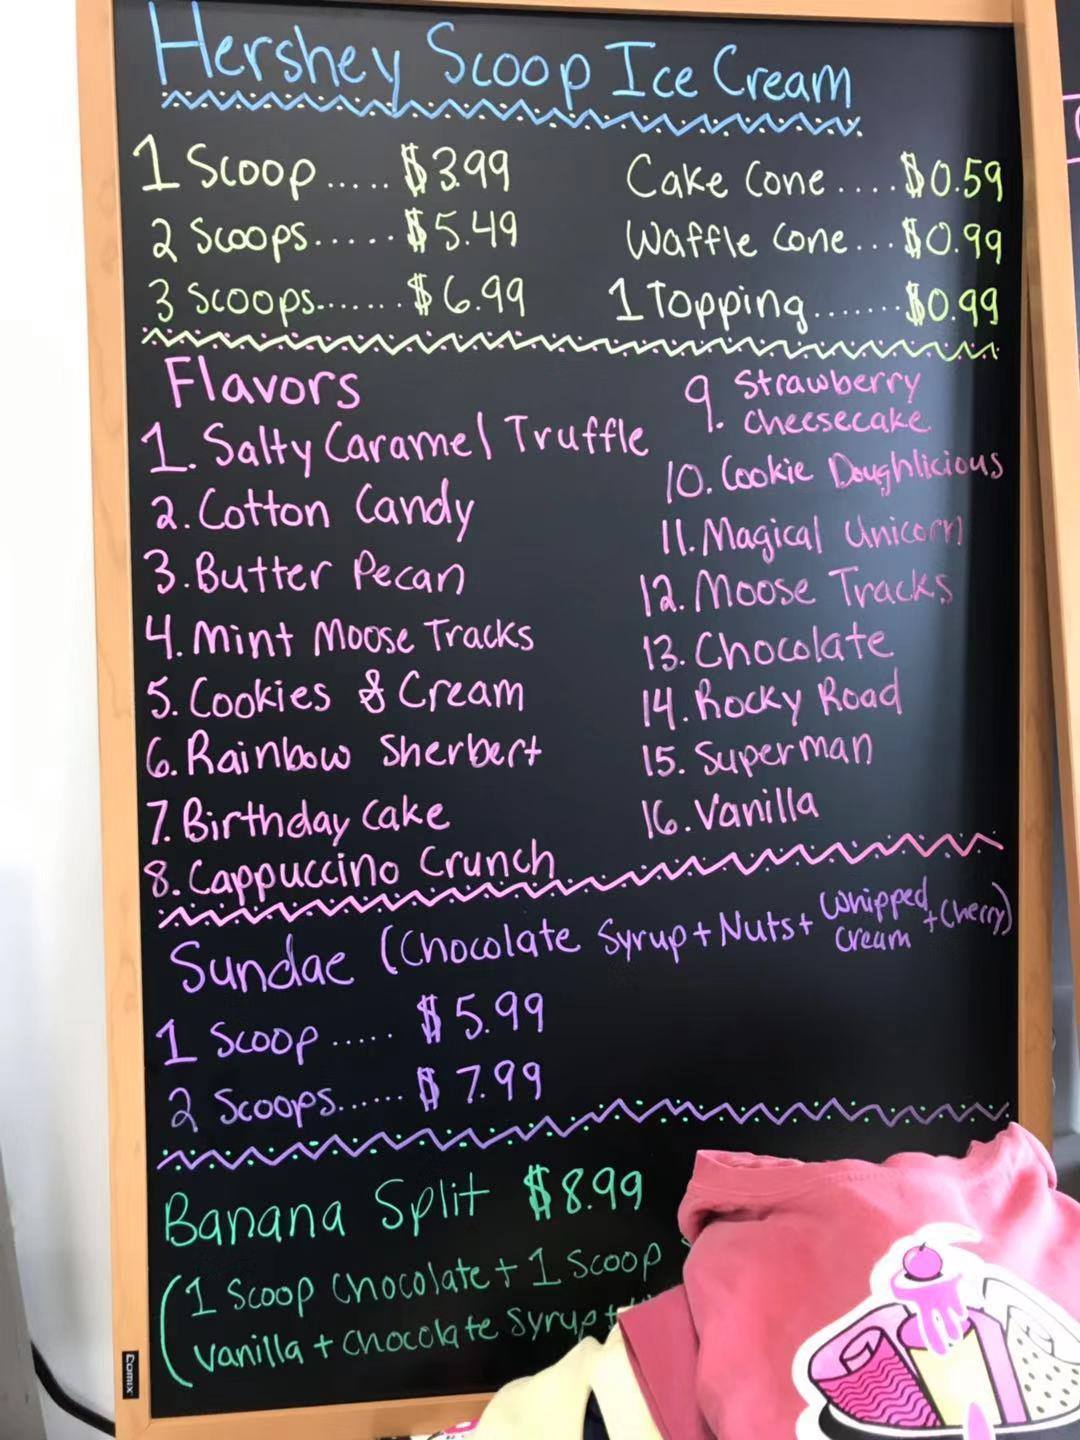 Hershey Scoop Ice Cream
1 Scoop ..... $3.99
2 Scoops...... $5.49
3 Scoops....... $6.99
Cake Cone .... $0.59
Waffle Cone ... $0.99
1 Topping ....... $0.99
Flavors
1. Salty Caramel Truffle
2. Cotton Candy
3. Butter Pecan
4. Mint Moose Tracks
5. Cookies & Cream
6. Rainbow Sherbert
7. Birthday Cake
8. Cappuccino Crunch
9. Strawberry
Cheesecake
10. Cookie Doughlicious
11. Magical Unicorn
12. Moose Tracks
13. Chocolate
14. Rocky Road
15. Superman
16. Vanilla
Sundae (Chocolate Syrup + Nuts + Whipped Cream + Cherry)
1 Scoop ..... $5.99
2 Scoops...... $7.99
Banana Split $8.99
(1 Scoop Chocolate + 1 Scoop
Vanilla + Chocolate Syrup +
Comix